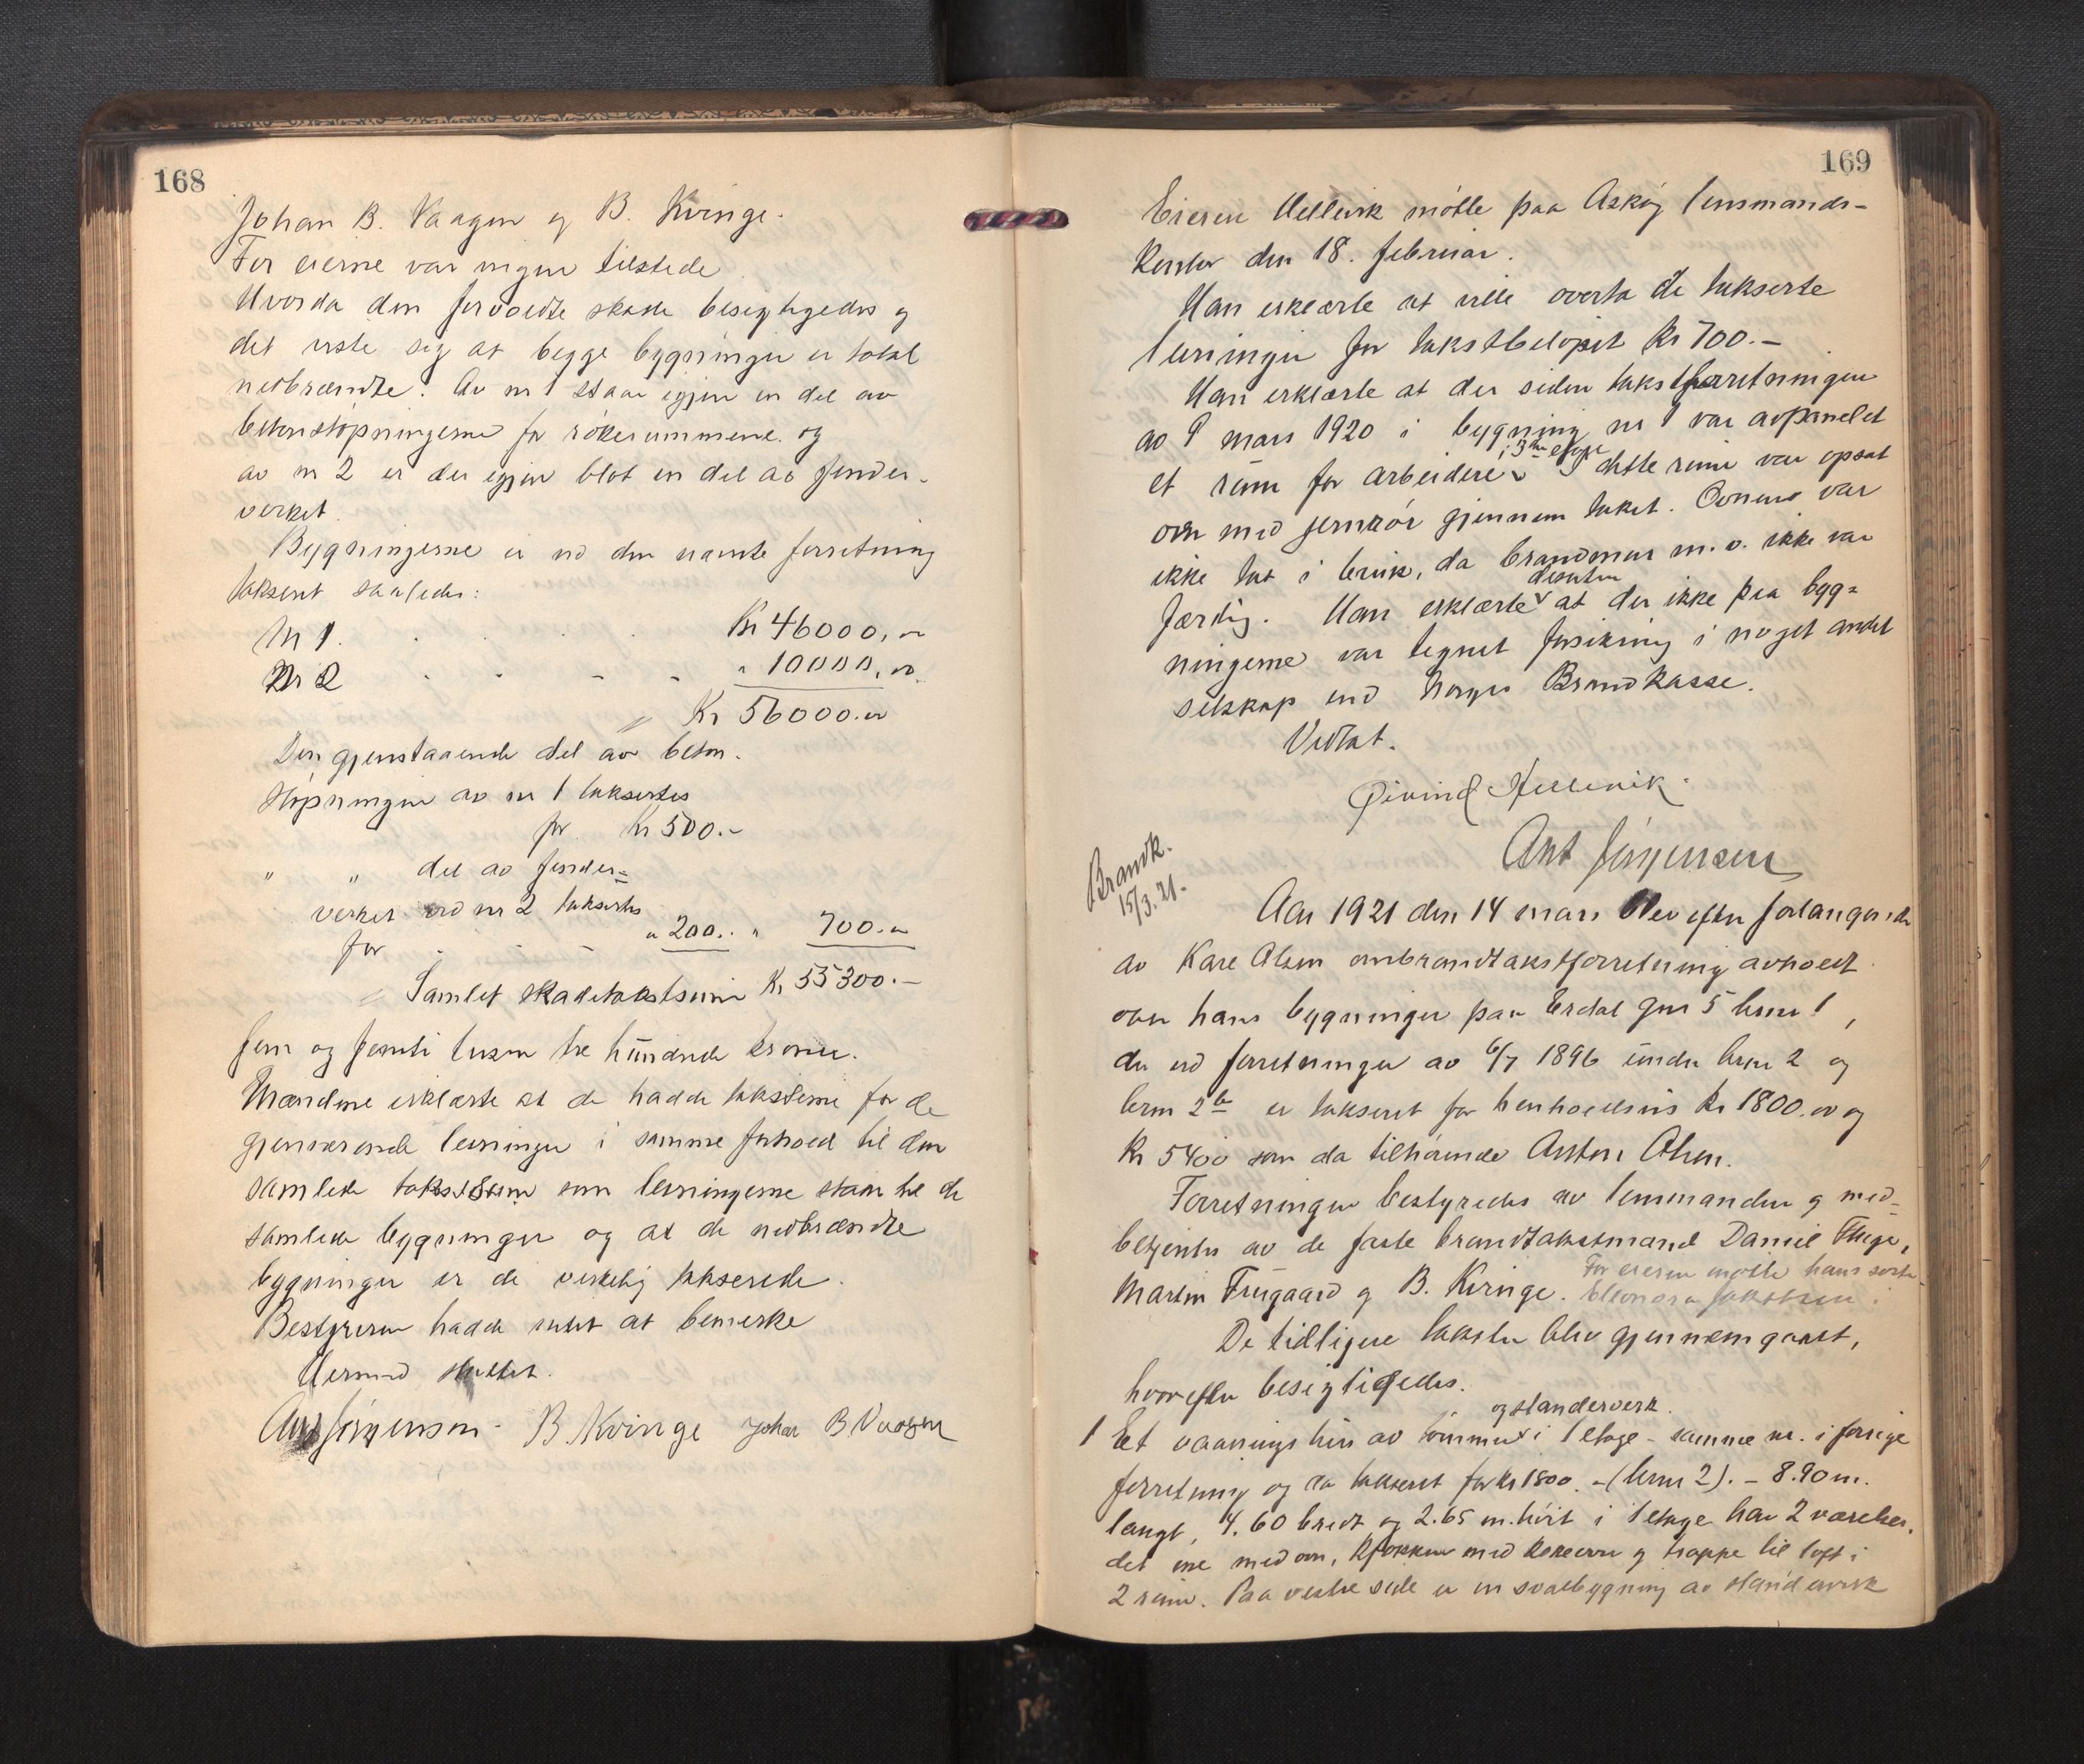 168
Johan B. Vaagen og B. Kvinge.
For eierne var ingen tilstede
Hvorda den forvoldte skade besigtigedes og
det viste sig at begge bygninger er total
nedbrændte. Av nr 1 staar igjen en del av
betonstøpningerne for røkerummene og
av nr 2 er der igjen blot en del av funder-
verket.
Bygningerne er ved den nævnte forretning
taksert saaledes:
Nr 1. . . . . Kr 46000,oo
Nr 2 - - - - " 10000,oo
" Kr 56000.oo
Den gjenstaaende del av beton-
støpningen av nr 1 taksertes
for Kr 500.-
" " del av funder=
verket ved nr 2 taksertes
for - - - " 200.. " 700.oo
" Samlet skadetakstsum Kr 55300.-
fem og femti tusen tre hundrede kroner.
Mændene erklærte at de hadde taksterne for de
gjenværende levninger i samme forhold til den
samlede takstsum som levningerne staar til de
samlede bygninger og at de nedbrændte
bygninger er de virkelig takserede.
Bestyreren hadde intet at bemerke
Hermed sluttet.
Ant Jørgensen - B. Kvinge Johan B Vaagen
169
Eieren Hellevik møtte paa Askøy lensmands-
kontor den 18. februar.
Han erklærte at ville overta de takserte
levninger for takstbeløpet Kr 700.-
Han erklærte at der siden takstforretningen
av 9 mars 1920 i bygning nr 1 var avpanelet
i 3die etage
et rum for arbeidere. I dette rum var opsat
ovn med jernrør gjennem taket. Ovnen var
ikke tat i bruk, da brandmur m.v. ikke var
desuten
færdig. Han erklærte at der ikke paa byg=
ningerne var tegnet forsikring i noget andet
selskap end Norges Brandkasse.
Vedtat.
Øivind Hellevik.
Ant Jørgensen
Brandk.
15/3.21.
Aar 1921 den 14 mars blev efter forlangende
av Kare Olsen ombrandtakstforretning avholdt
over hans bygninger paa Erdal gnr 5 brnr 1,
der ved forretninger av 6/7 1896 under brnr 2 og
brnr 2b er taksert for henholdsvis Kr 1800.oo og
Kr 5400 som da tilhørende Anton Olsen.
Forretningen bestyredes av lensmanden og med-
betjentes av de faste brandtakstmænd Daniel Fluge,
For eieren møtte hans søster
Martin Frugaard og B. Kvinge. Eleonora Jakobsen.
De tidligere takster blev gjennemgaaet,
hvorefter besigtigedes.
og standerverk.
1 Et vaaningshus av tømmer i 1 etage - samme nr. i forrige
forretning og da taksert for kr 1800.-(brnr 2). - 8.90 m.
langt, 4.60 bredt og 2.65 m. høit i 1 etage har 2 værelser,
det ene med ovn, kjøkken med kokeovn og trappe til loft i
2 rum. Paa vestre side er en svalbygning av standerverk